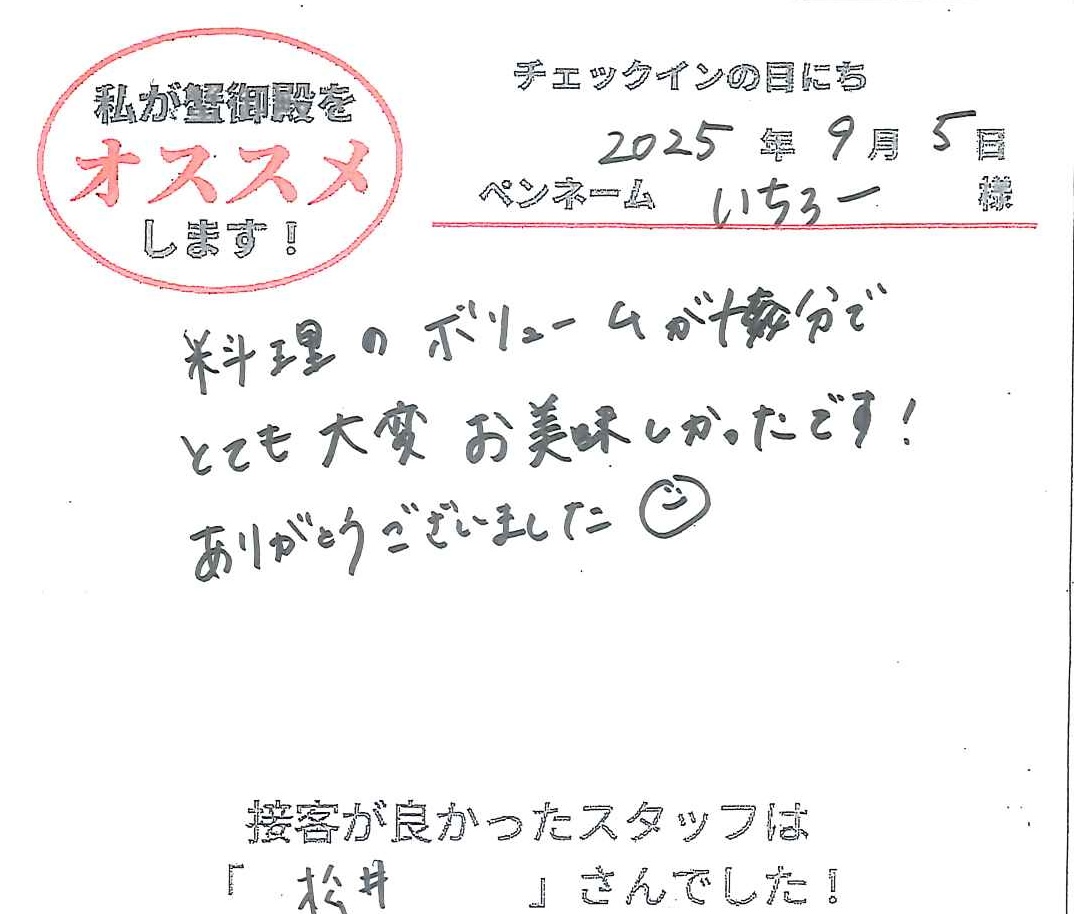 私が蟹御殿を
オススメ
します!
チェックインの日にち
2025年9月5日
ペンネーム いちろー 様
料理のボリュームが十分で
とても大変お美味しかったです!
ありがとうございました
接客が良かったスタッフは
「 松井 」さんでした!